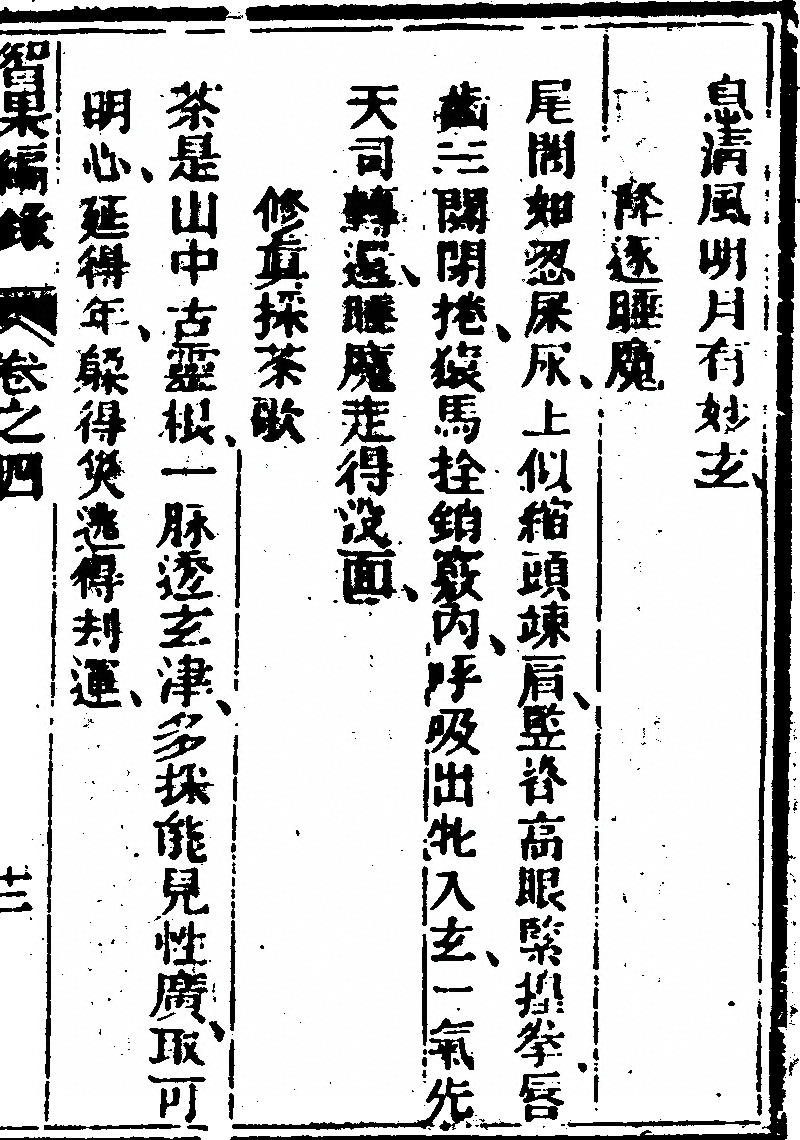 息淸風明月有妙玄
降逐睡魔
尾閭如忍屎尿上似縮頭竦肩竪脊高眼緊揑拳唇
齒三關閉捲猿馬拴鎖竅內呼吸出牝入玄一氣先
天司轉還睡魔走得沒面
修眞採茶歌
茶是山中古靈根一脉透玄津多採能見性廣取可
明心延得年躱得災逃得刦運
智果編錄 卷之四
十三